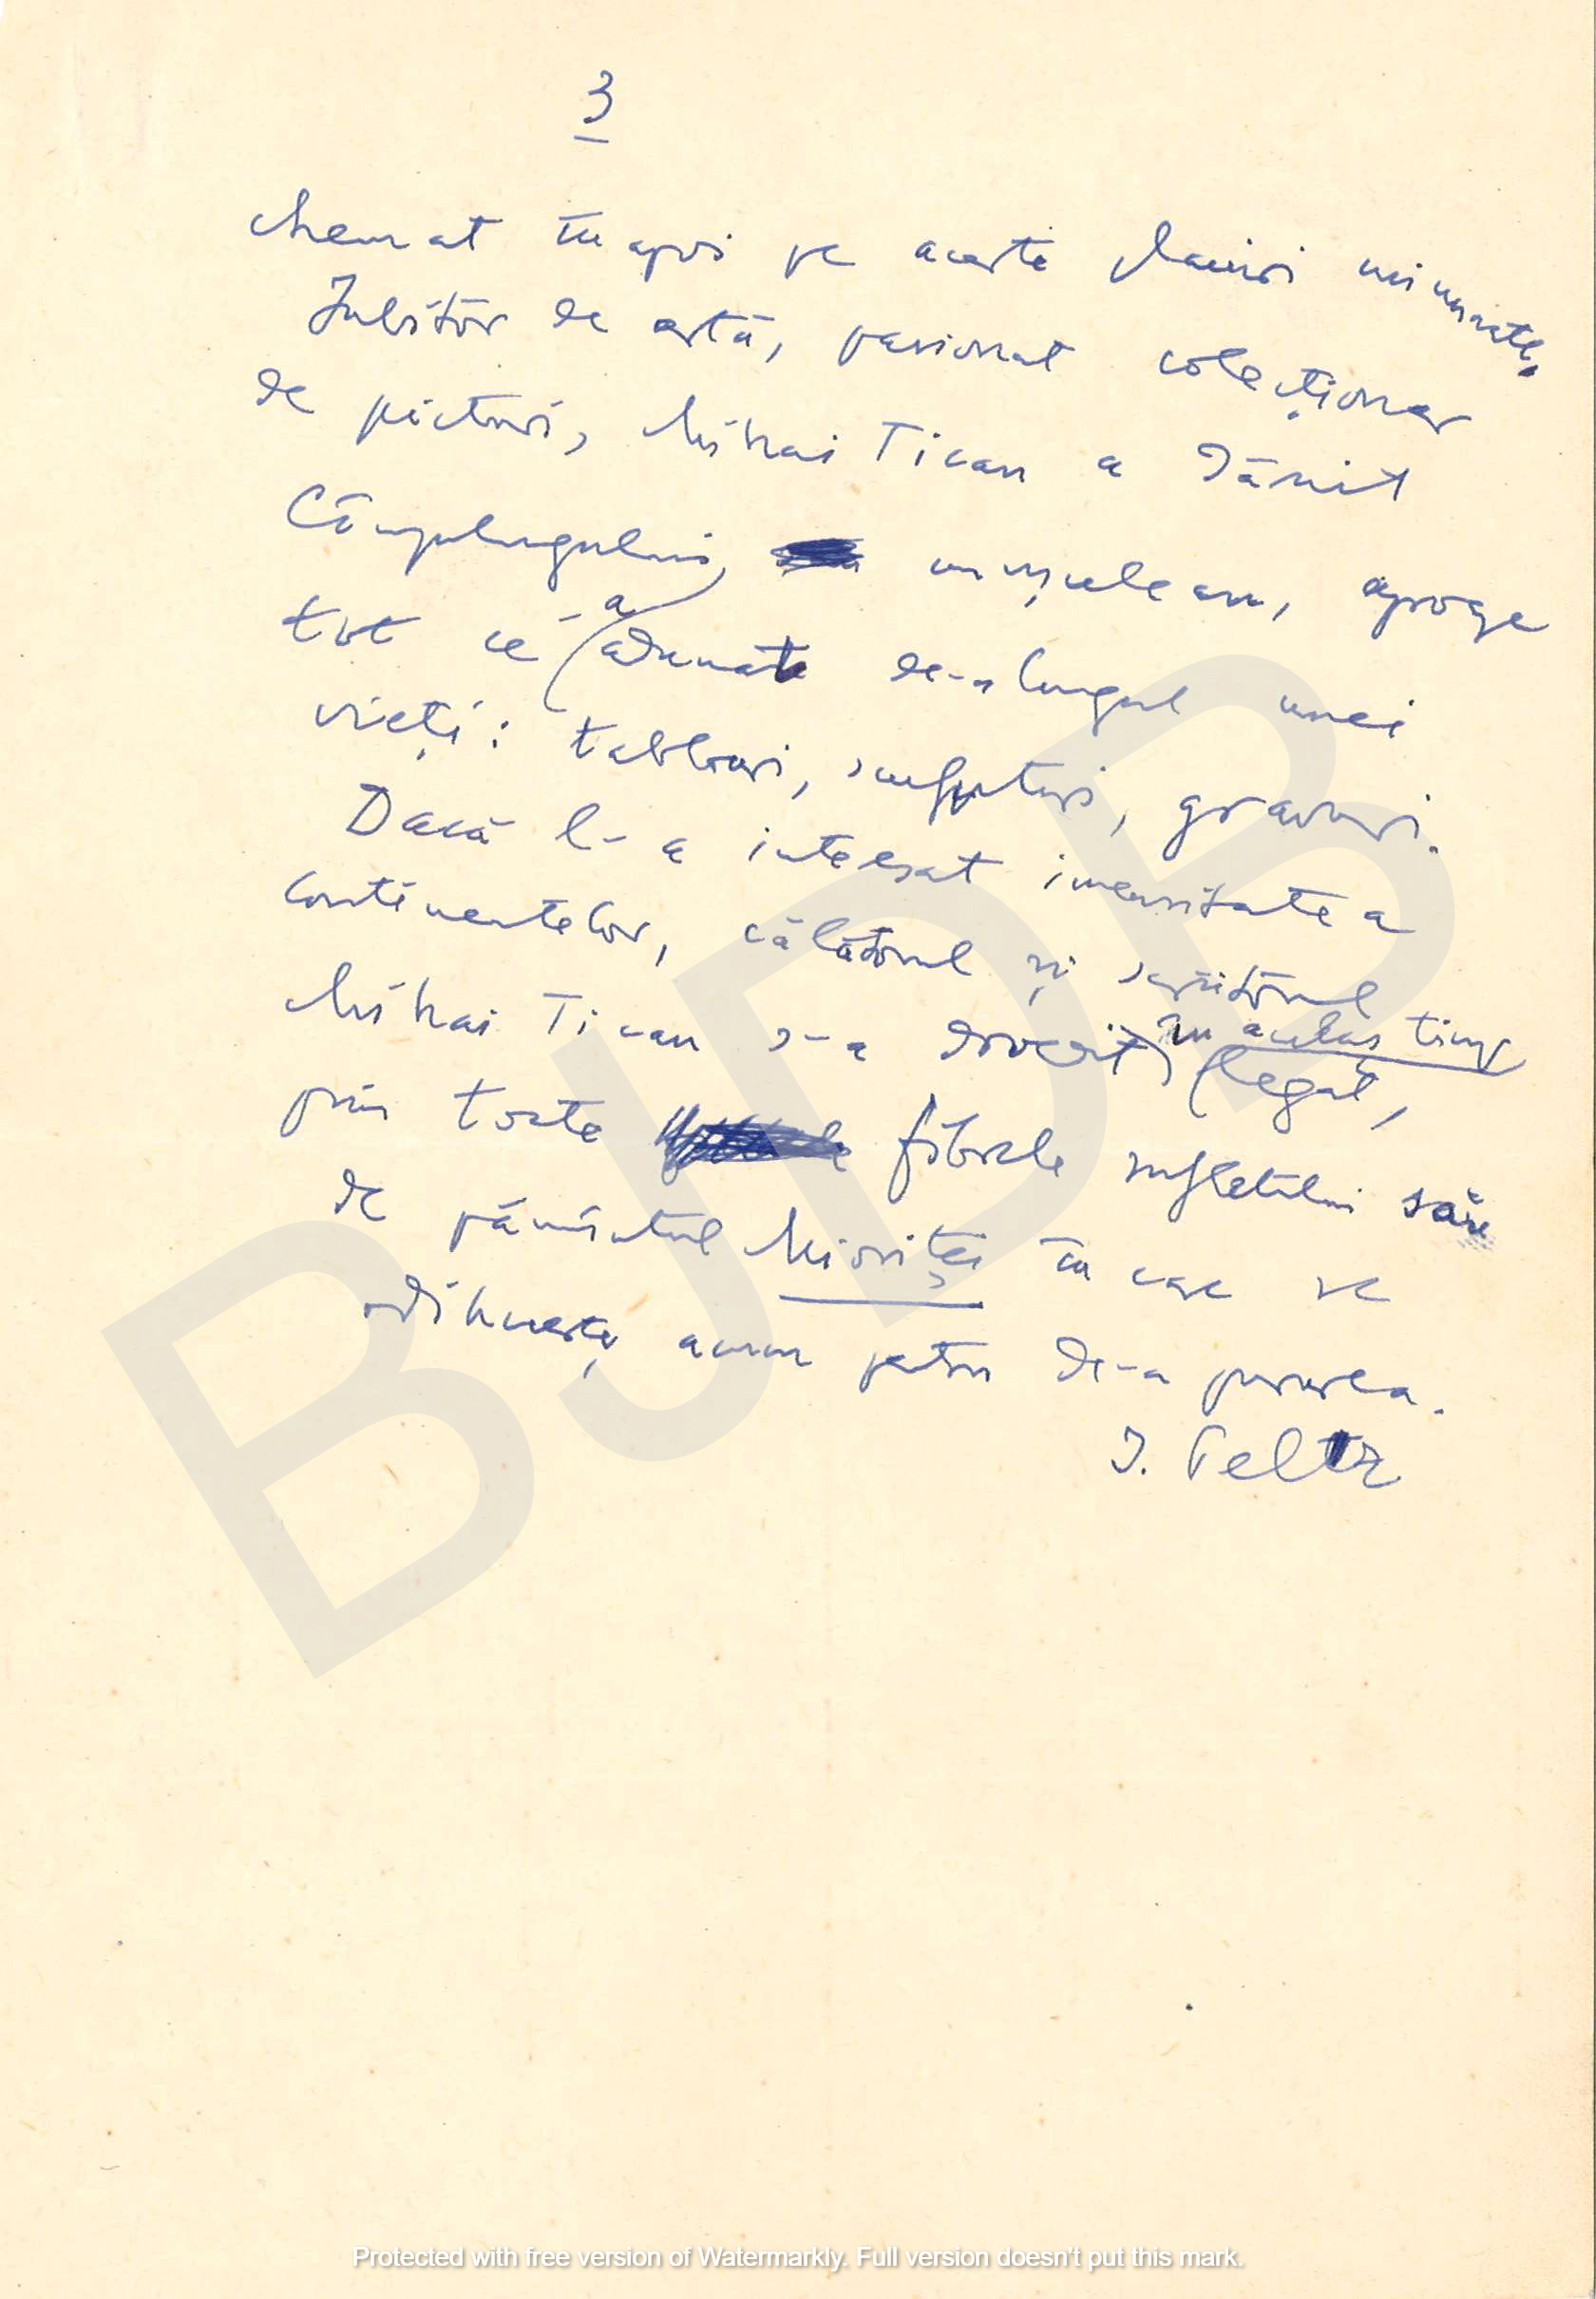 3
chemat înapoi pe aceste plaiuri minunate.
Iubitor de artă, pasionat colecționar
de picturi, Mihai Tican a dăruit
Câmpulungului, mușcelean, aproape
tot ce a adunat de-a lungul unei
vieți: tablouri, sculpturi, gravuri.
Dacă l-a interesat imensitatea
continentelor, călătorul și scriitorul
Mihai Tican s-a dovedit, în același timp
legat,
prin toate fibrele sufletului său
de pământul Mioriței în care se
odihnește acum pentru de-a pururea.
I. Peltz
BJDB
Protected with free version of Watermarkly. Full version doesn't put this mark.